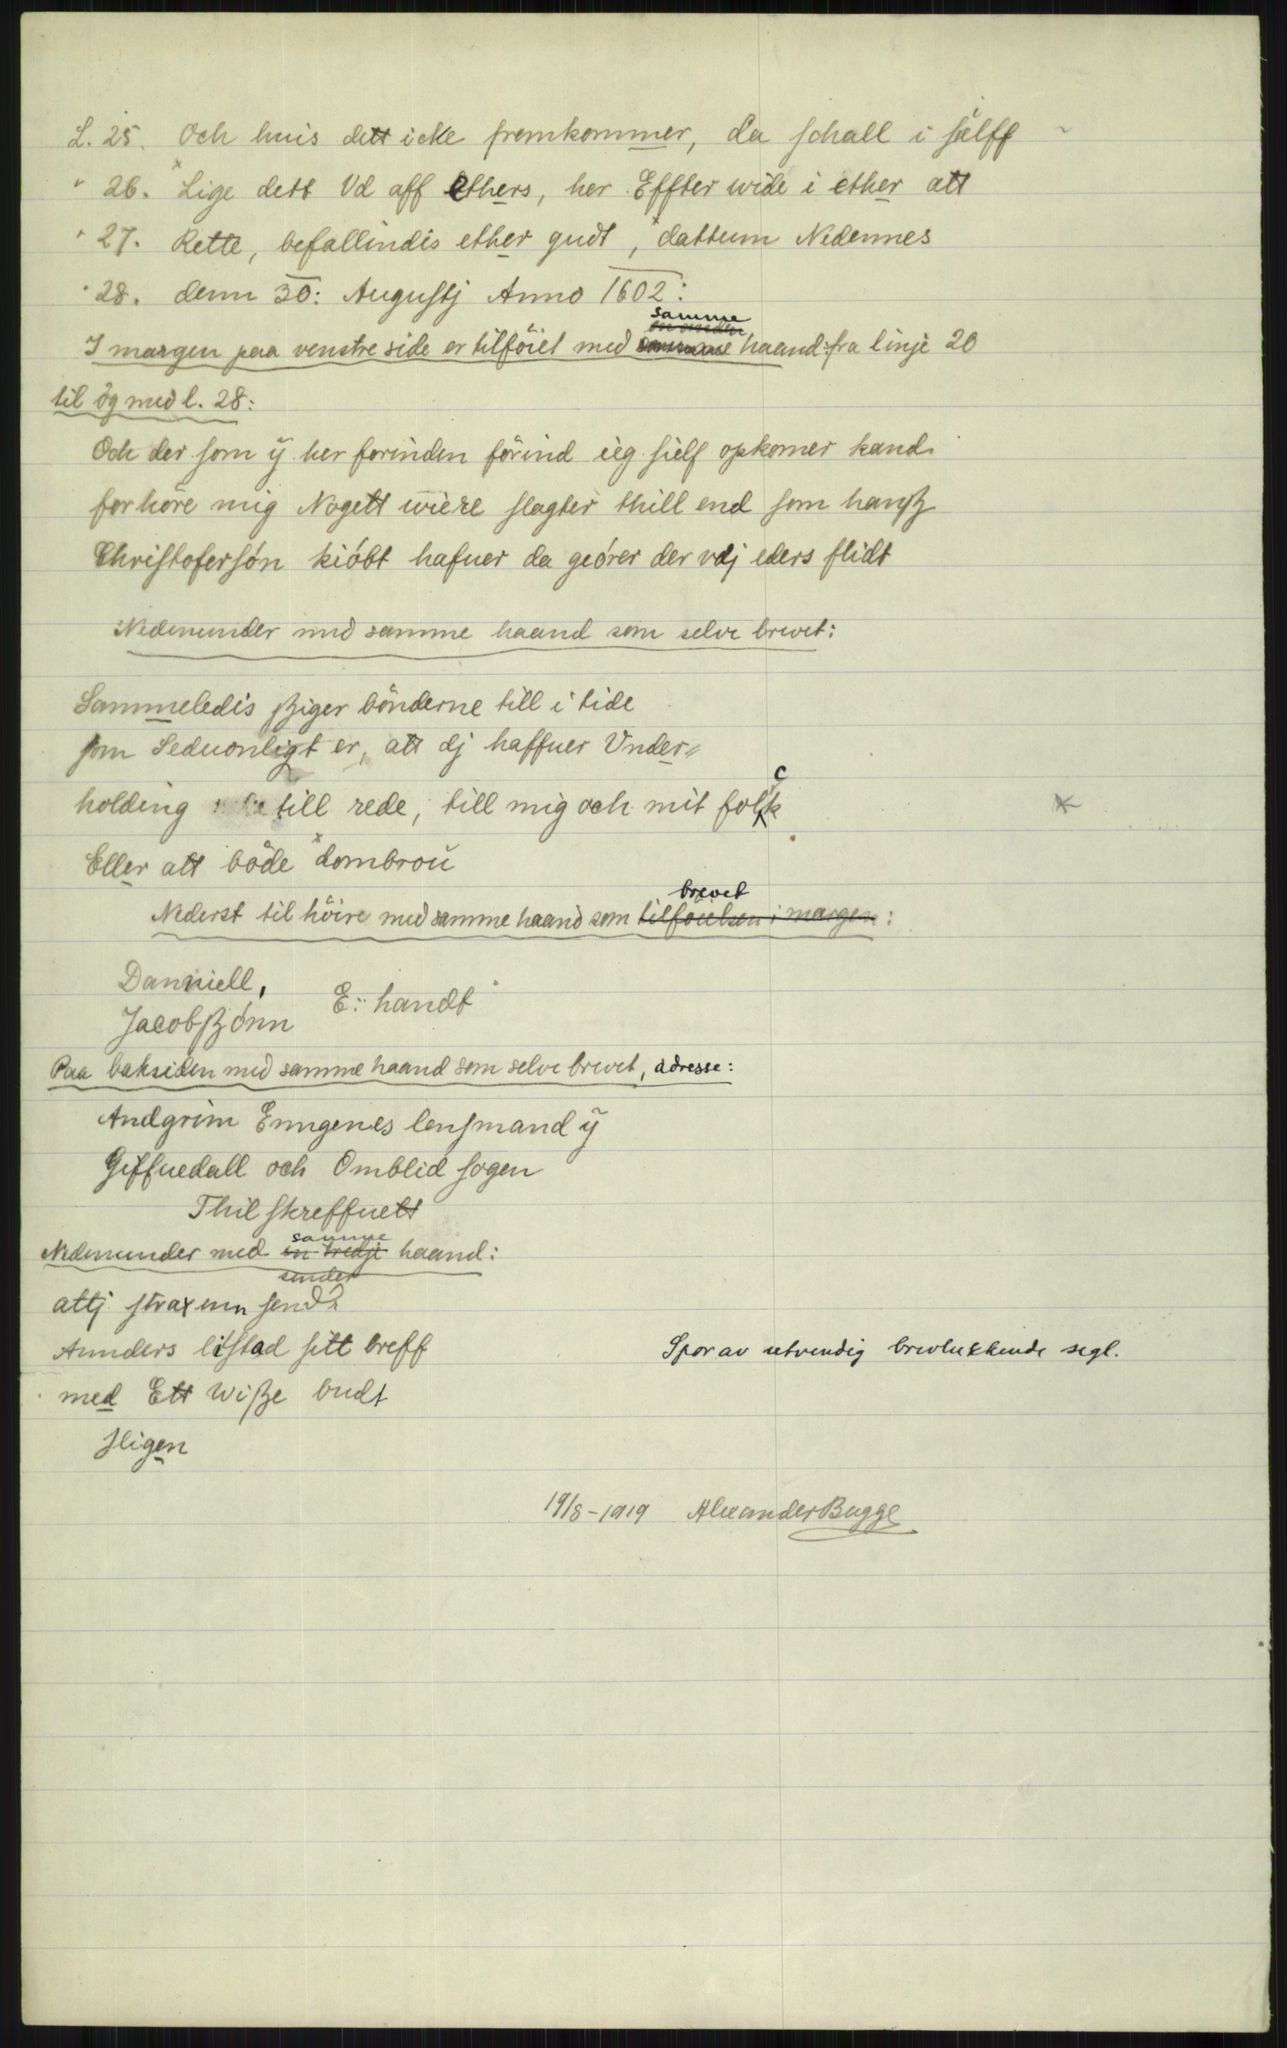 L. 25. Och huis dett icke fremkommer, da schall i sielff
" 26. Lige dett Vd aff Ethers, her Effter wide i ether att
" 27. Rette, befallindis ether gudt, dattum Nedennes
" 28. denn 30: Augustj Anno 1602:
samme
en anden
I margen paa venstre side er tilföiet med samme haand: fra linje 20
til og med l. 28:
Och der som ÿ her forinden förind ieg sielf opkomer kand
forhöre mig Nogett wiere slagter thill end som hansz
Christofersón kióbt hafuer da geórer der vdj eders flidt
Nedenunder med samme haand som selve brevet:
Sammeledis sziger bönderne till i tide
som Seduonligt er, att dj haffuer Vnder=
holding till rede, till mig och mit folck
Eller att böde dombroü
brevet
Nederst til höire med samme haand som tilföielsen i margen:
Danniell,
Jacobszónn E: handt
Paa baksiden med samme haand som selve brevet, adresse:
Andgrim Enngenes lensmand ÿ
Giffuedall och Omblid sogen
Thil skreffuett
samme
Nedenunder med en tredje haand:
sender
attj straxenn send
Annders listad sitt breff
Spor av utvendig brevlukkende segl.
med Ett wisze budt
sligen
19/8-1919 Alexander Bugge